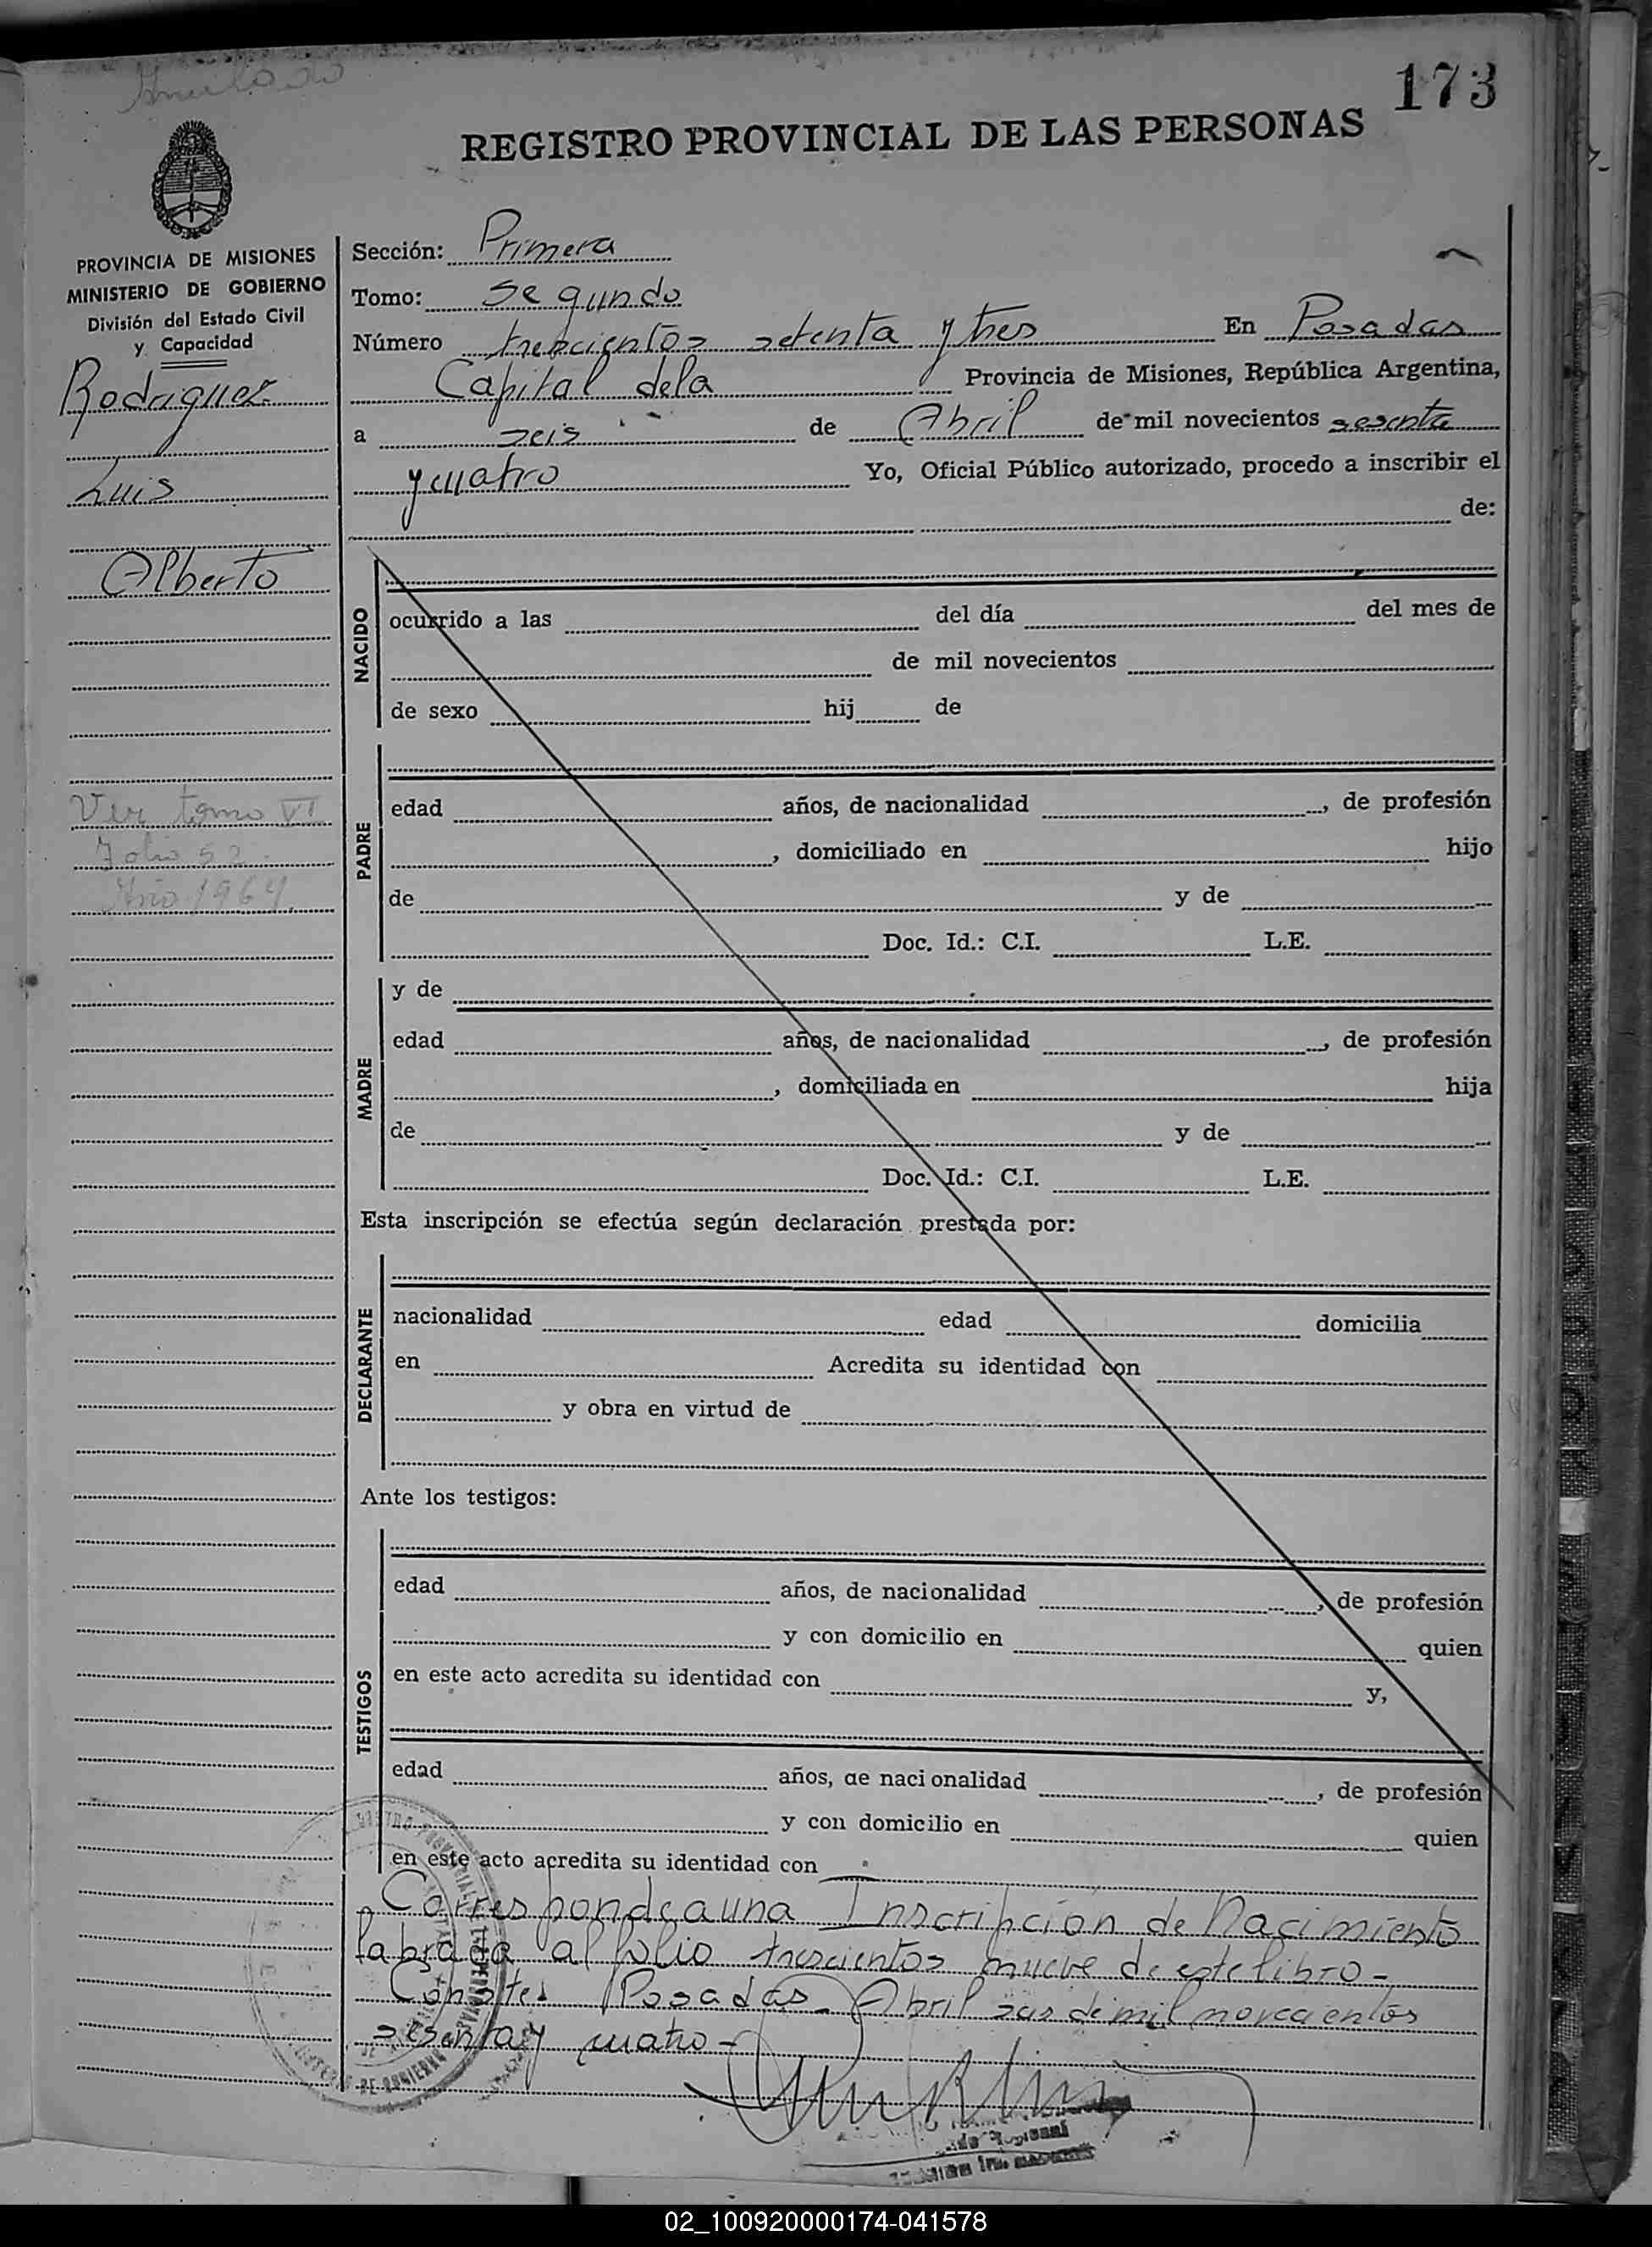 Anulado
173
REGISTRO PROVINCIAL DE LAS PERSONAS
PROVINCIA DE MISIONES
MINISTERIO DE GOBIERNO
División del Estado Civil
y Capacidad
Rodriguez
Luis
Alberto
Ver tomo VI
Folio 52.
Año 1964.
Sección: Primera
Tomo: Segundo
Número trescientos setenta y tres En Posadas
Capital dela Provincia de Misiones, República Argentina,
a seis de Abril de mil novecientos sesenta
y cuatro Yo, Oficial Público autorizado, procedo a inscribir el
de:
NACIDO
ocurrido a las del día del mes de
de mil novecientos
de sexo hij de
PADRE
edad años, de nacionalidad , de profesión
, domiciliado en hijo
de y de
Doc. Id.: C.I. L.E.
MADRE
y de
edad años, de nacionalidad , de profesión
, domiciliada en hija
de y de
Doc. Id.: C.I. L.E.
Esta inscripción se efectúa según declaración prestada por:
DECLARANTE
nacionalidad edad domicilia
en Acredita su identidad con
y obra en virtud de
Ante los testigos:
TESTIGOS
edad años, de nacionalidad , de profesión
y con domicilio en quien
en este acto acredita su identidad con y,
edad años, de nacionalidad , de profesión
y con domicilio en quien
en este acto acredita su identidad con
Corresponde a una Inscripción de Nacimiento
labrada al folio trescientos nueve de este libro -
Conste. Posadas - Abril seis de mil novecientos
sesenta y cuatro -
02_100920000174-041578